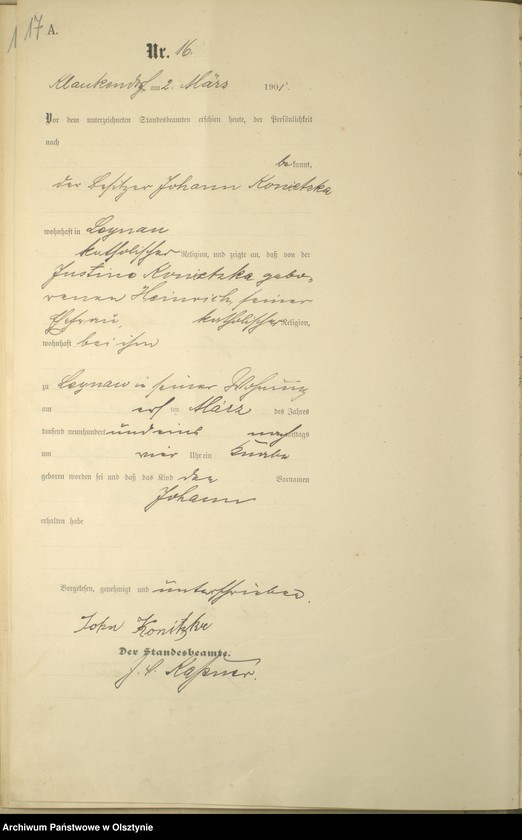 17 A.
Nr. 16.
Klaukendorf am 2. März 1901.
Vor dem unterzeichneten Standesbeamten erschien heute, der Persönlichkeit
nach
bekannt,
der Besitzer Johann Konietzka
wohnhaft in Leynau
katholischer Religion, und zeigte an, daß von der
Justine Konietzka gebo-
renen Heinrich, seiner
Ehefrau, katholischer Religion,
wohnhaft bei ihm
zu Leynau in seiner Wohnung
am ersten März des Jahres
tausend neunhundert und eins nachmittags
um vier Uhr ein Knabe
geboren worden sei und daß das Kind den Vornamen
Johann
erhalten habe
Vorgelesen, genehmigt und unterschrieben.
John Konitzke
Der Standesbeamte.
Archiwum Państwowe w Olsztynie